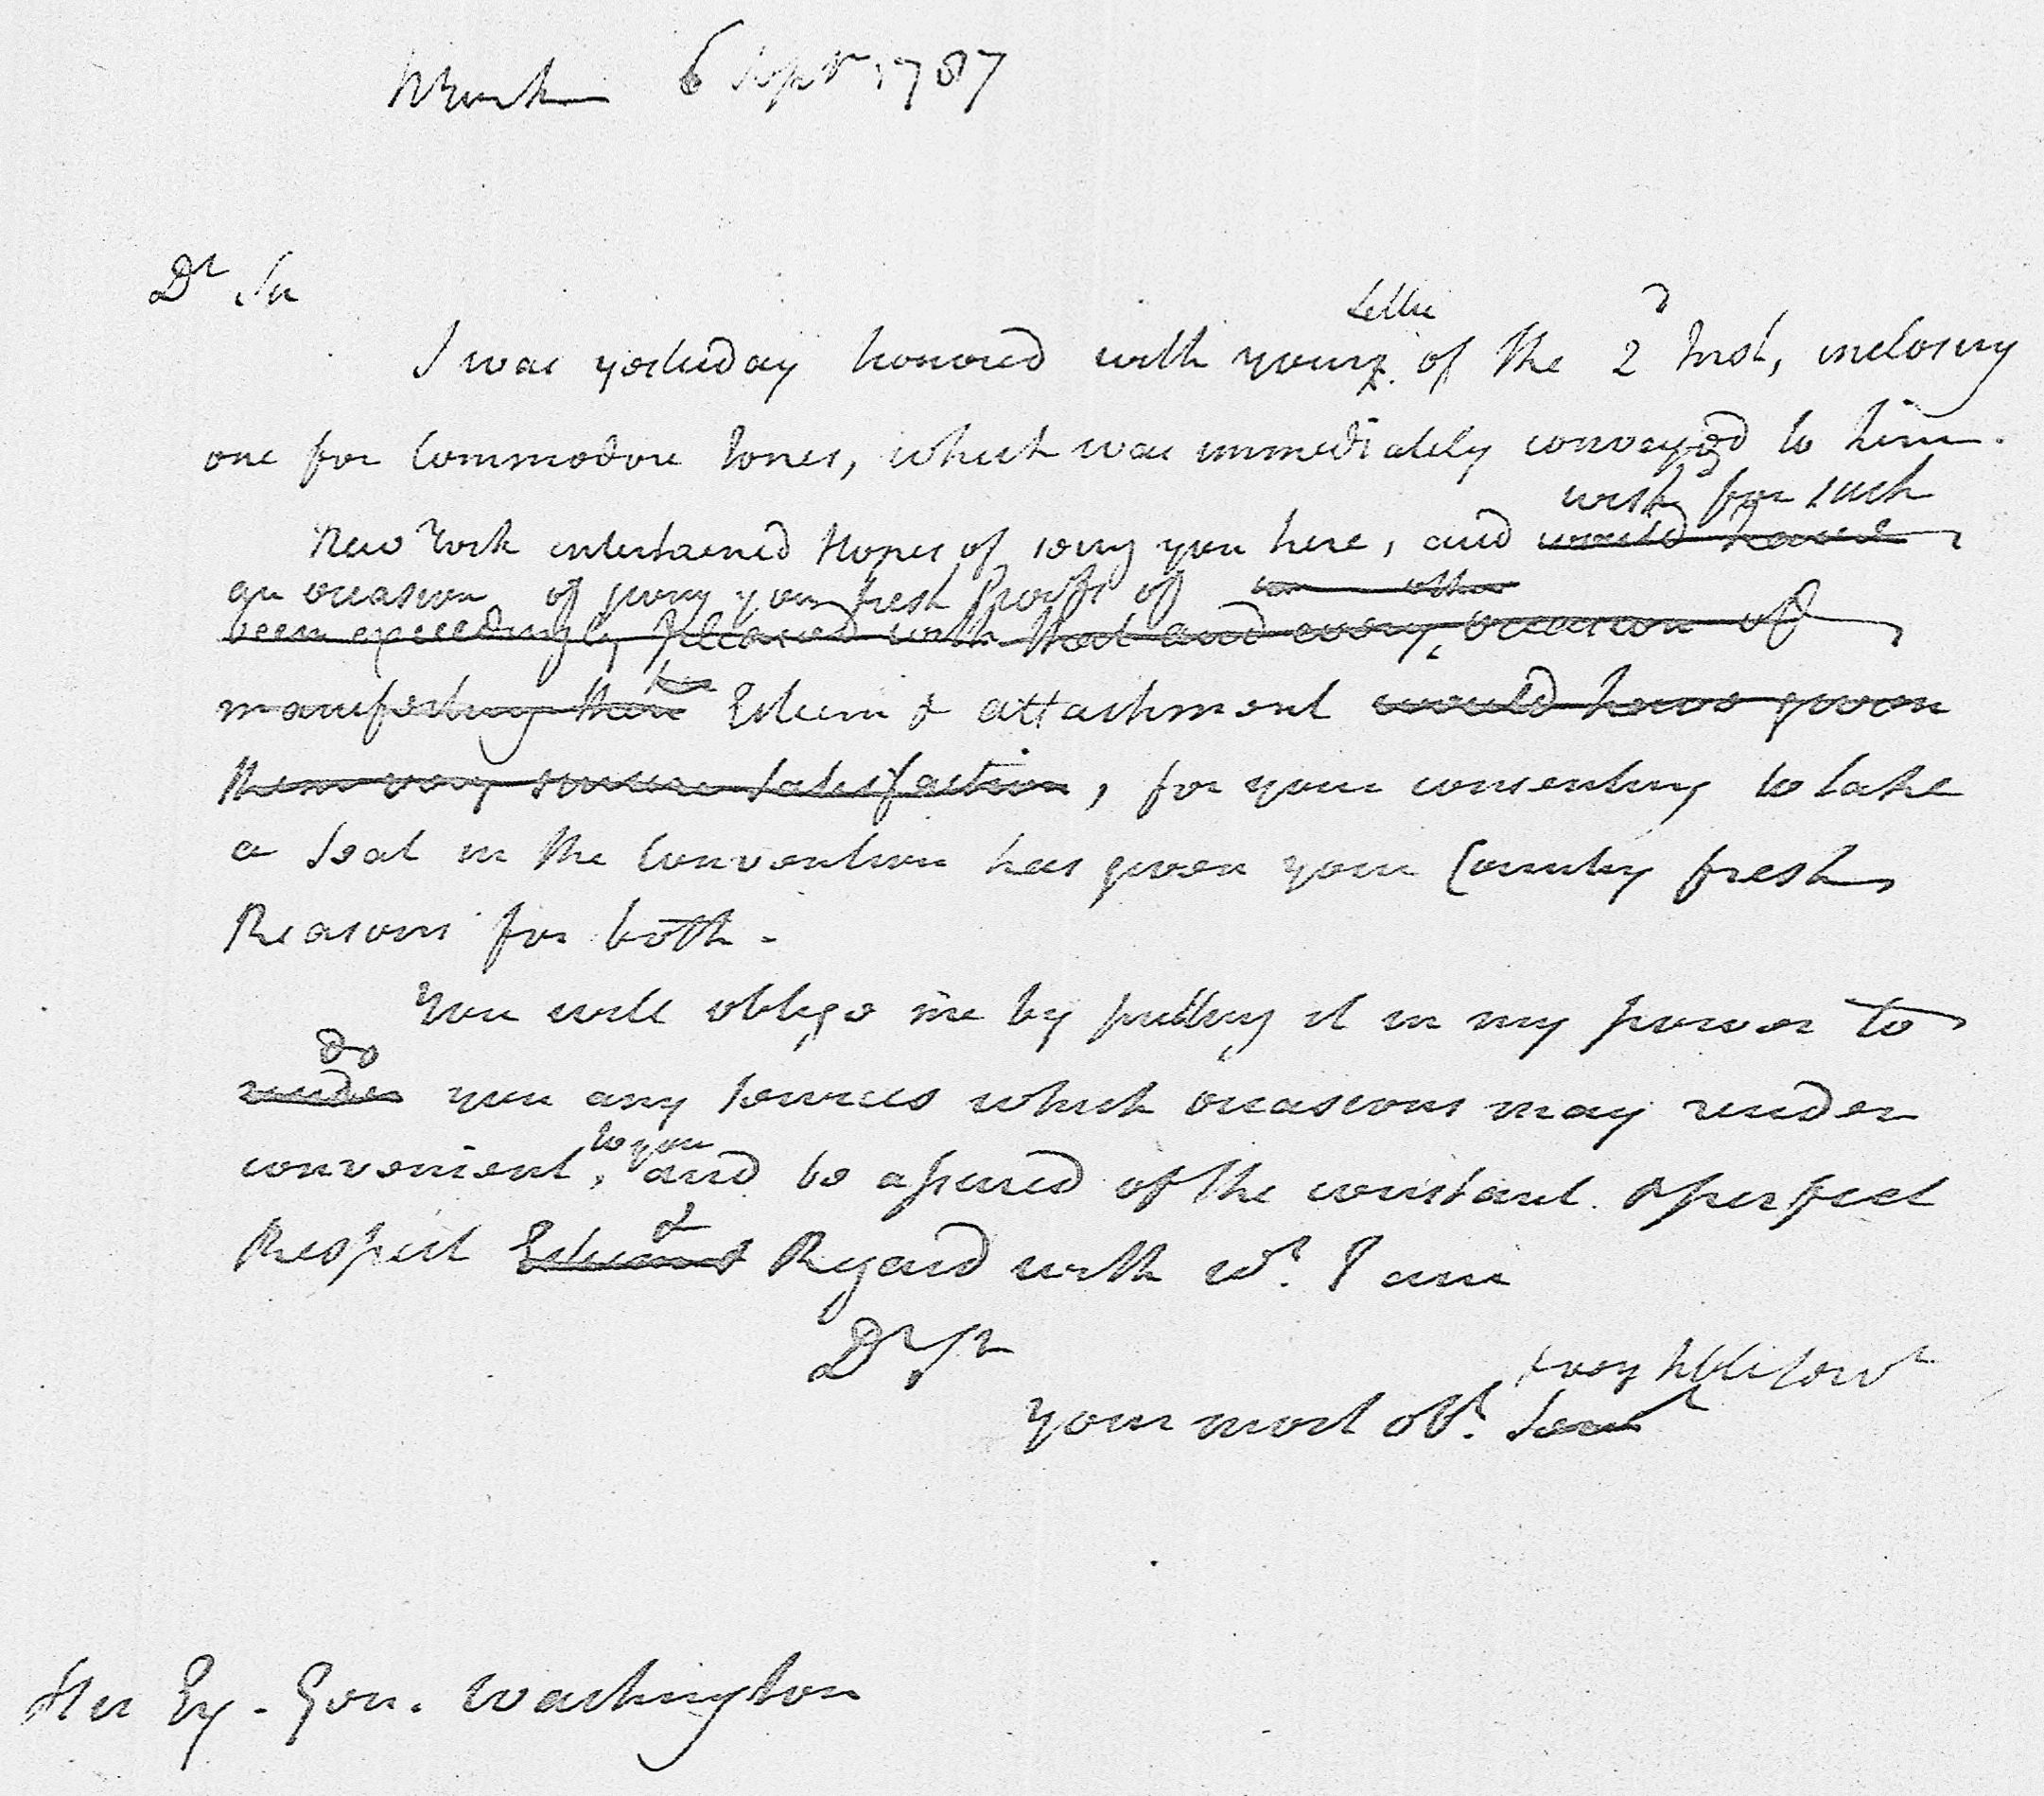 NYork 6 Sepr 1787
Dr Sir
Letter
I was yesterday honored with yours of the 2d Inst, inclosing
one for Commodore Jones, which was immediately conveyed to him.
wish for such
New York entertained Hopes of seeing you here, and would have
an occasion of giving you fresh Proofs of other
been exceedingly pleased with that and every occasion of
her
manifesting their Esteem & attachment would have given
them very sincere Satisfaction, for your consenting to take
a Seat in the Convention has given your Country fresh
Reasons for both.
You will oblige me by putting it in my power to
do
render you any Services which occasions may render
to you
convenient, and be assured of the constant & perfect
&
Respect Esteem & Regard with wh. I am
Dr Sir
& very hble servt
your most obt. Servt
His Ex. Gen. Washington